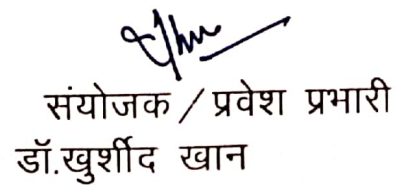 संयोजक / प्रवेश प्रभारी
डॉ.खुर्शीद खान